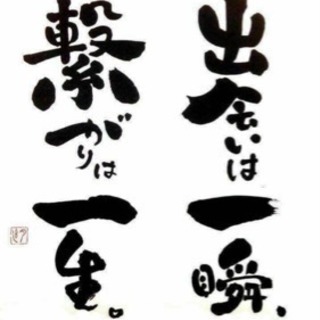 出会いは一瞬、
繋がりは一生。